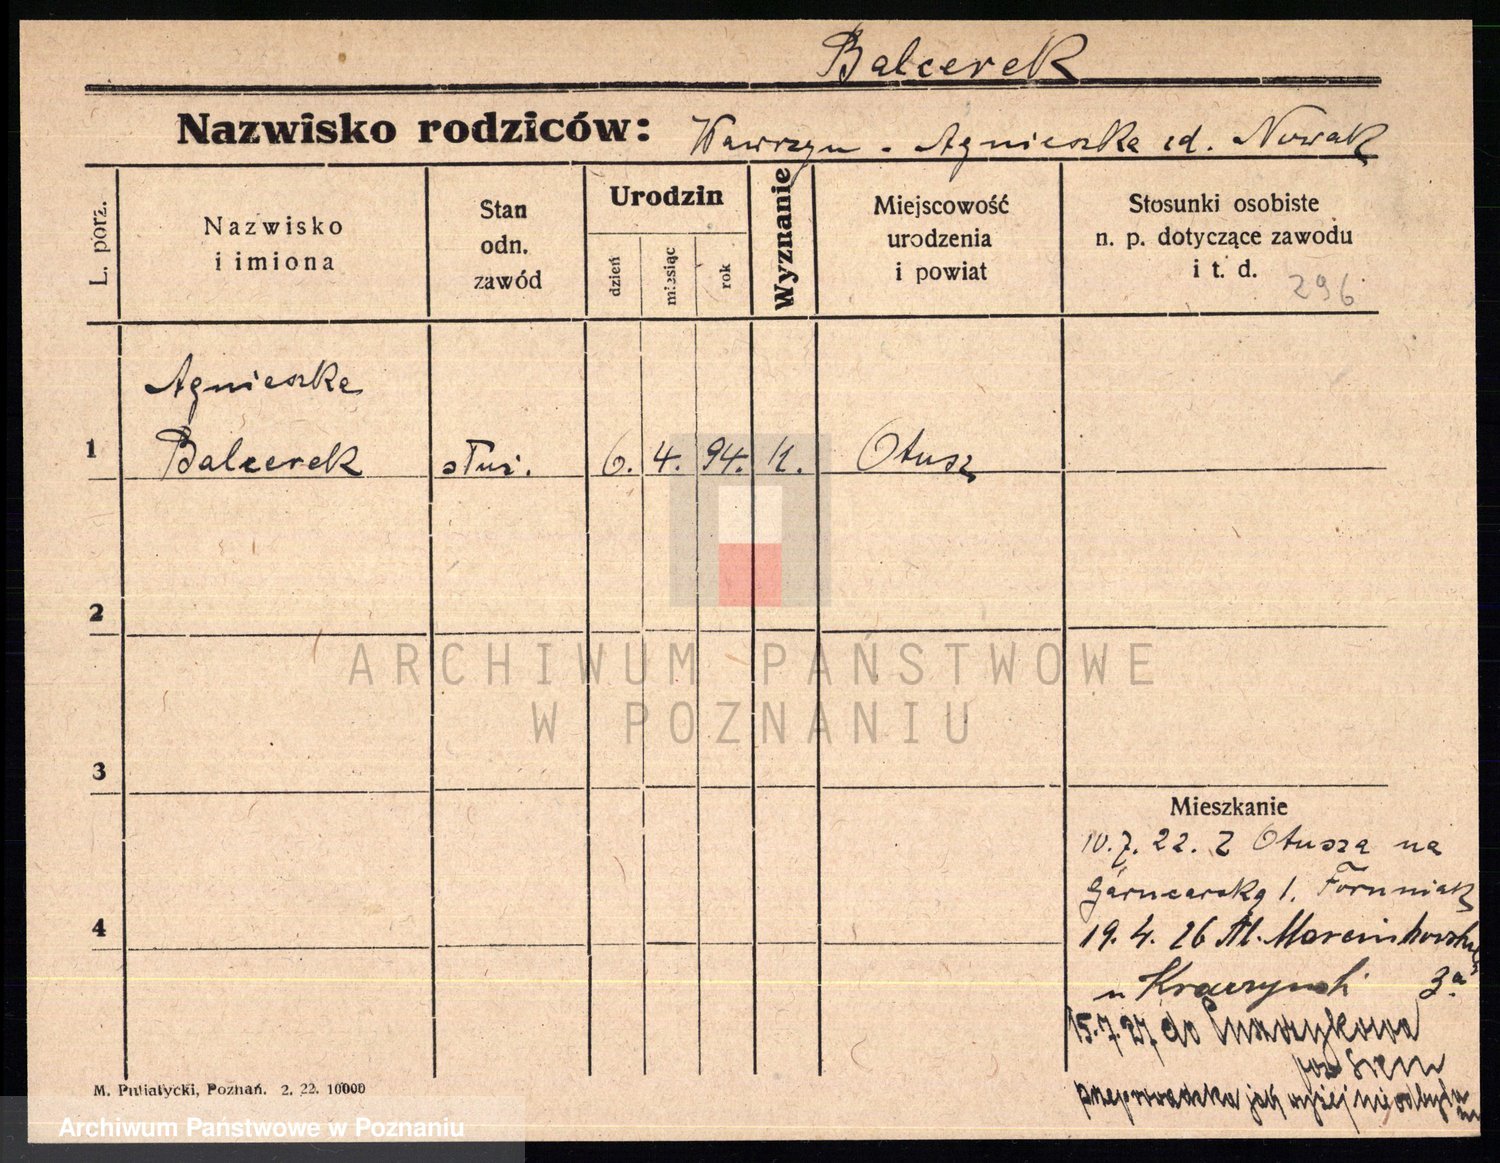 Balcerek
Nazwisko rodziców: Wawrzyn - Agnieszka zd. Nowak
L. porz.
Nazwisko
i imiona
Stan
odn.
zawód
Urodzin
dzień
miesiąc
rok
Wyznanie
Miejscowość
urodzenia
i powiat
Stosunki osobiste
n. p. dotyczące zawodu
i t. d.
296
Agnieszka
1 Balcerek służ. 6. 4. 94. K. Otusz
2
3
4
Mieszkanie
10.7.22. Z Otusza na
Garncarską 1.
19.4.26 Al. Marcinkowskiego
u Krawzynski 3a
15.7.27 do
pow Srem
przeprowadzka jak wyżej nie odbyła
M. Putiatycki, Poznań. 2. 22. 10000
ARCHIWUM PAŃSTWOWE
W POZNANIU
Archiwum Państwowe w Poznaniu